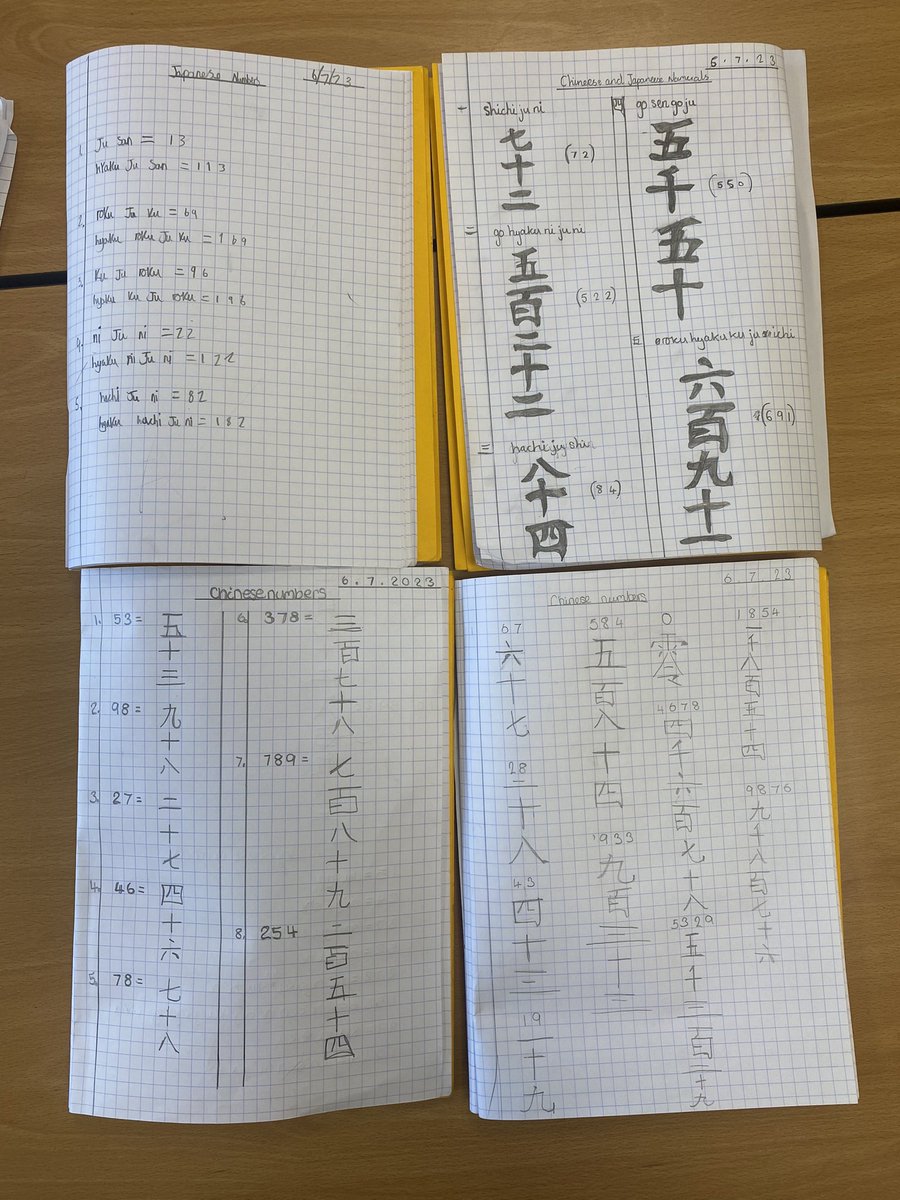 Japanese Numbers 6/7/23
1. Ju San = 13
hyaku Ju San = 113
2. roku Ju ku = 69
hyaku roku Ju ku = 169
3. ku Ju roku = 96
hyaku ku Ju roku = 196
4. ni Ju ni = 22
hyaku ni Ju ni = 122
5. hachi Ju ni = 82
hyaku hachi Ju ni = 182
5.7.23
Chineese and Japanese Numerals
一 shichi ju ni
七十二 (72)
二 go hyaku ni ju ni
五百二十二 (522)
三 hachi ju shi
八十四 (84)
四 go sen go ju
五千五十 (550)
五 roku hyaku ku ju ichi
六百九十一 (691)
6.7.2023
Chinese numbers
1. 53 = 五十三
2. 98 = 九十八
3. 27 = 二十七
4. 46 = 四十六
5. 78 = 七十八
6. 378 = 三百七十八
7. 789 = 七百八十九
8. 254 二百五十四
6.7.23
Chinese numbers
67
六十七
28
二十八
43
四十三
19
一十九
584
五百八十四
933
九百三十三
0
零
4678
四千六百七十八
5329
五千三百二十九
1854
一千八百五十四
9876
九千八百七十六